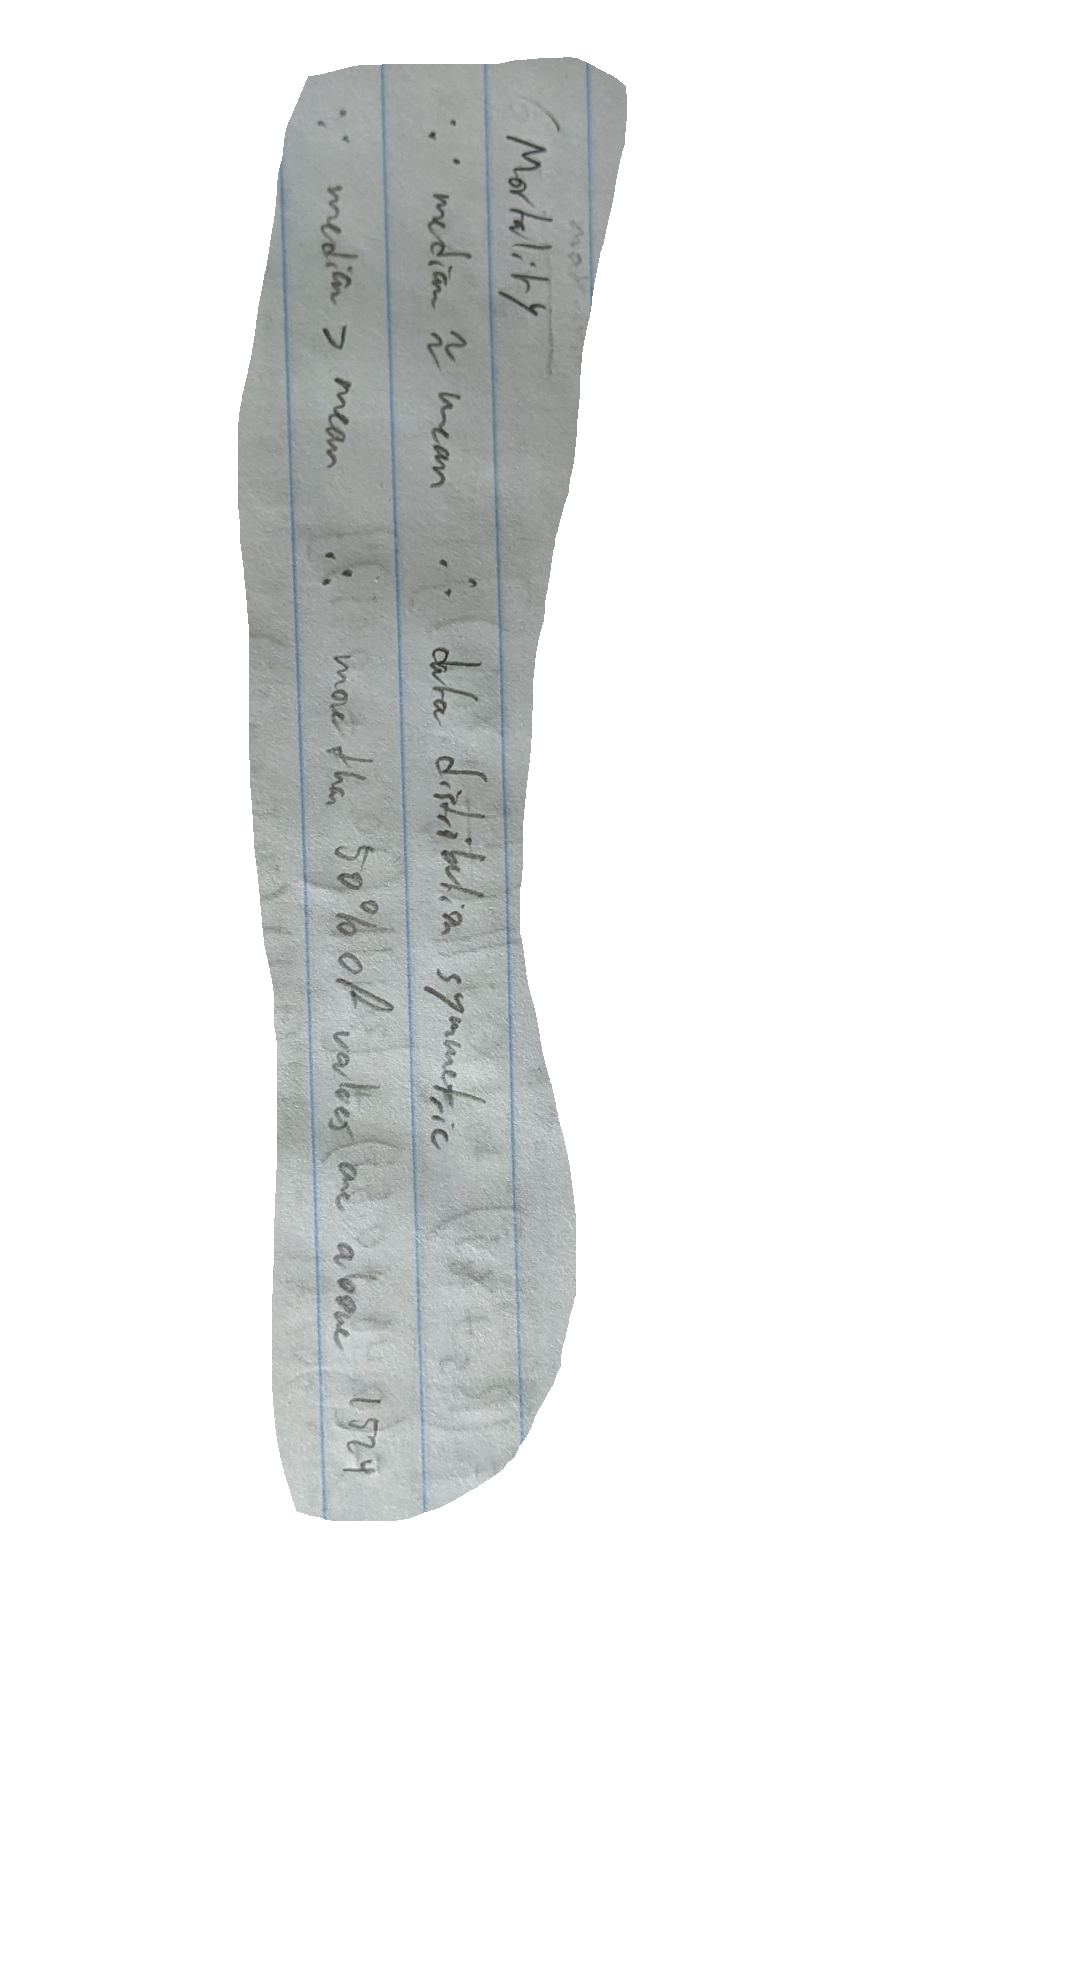 Mortality
∵ median ≈ mean ∴ data distribution symmetric
∵ median > mean ∴ more than 50% of values are above 1524